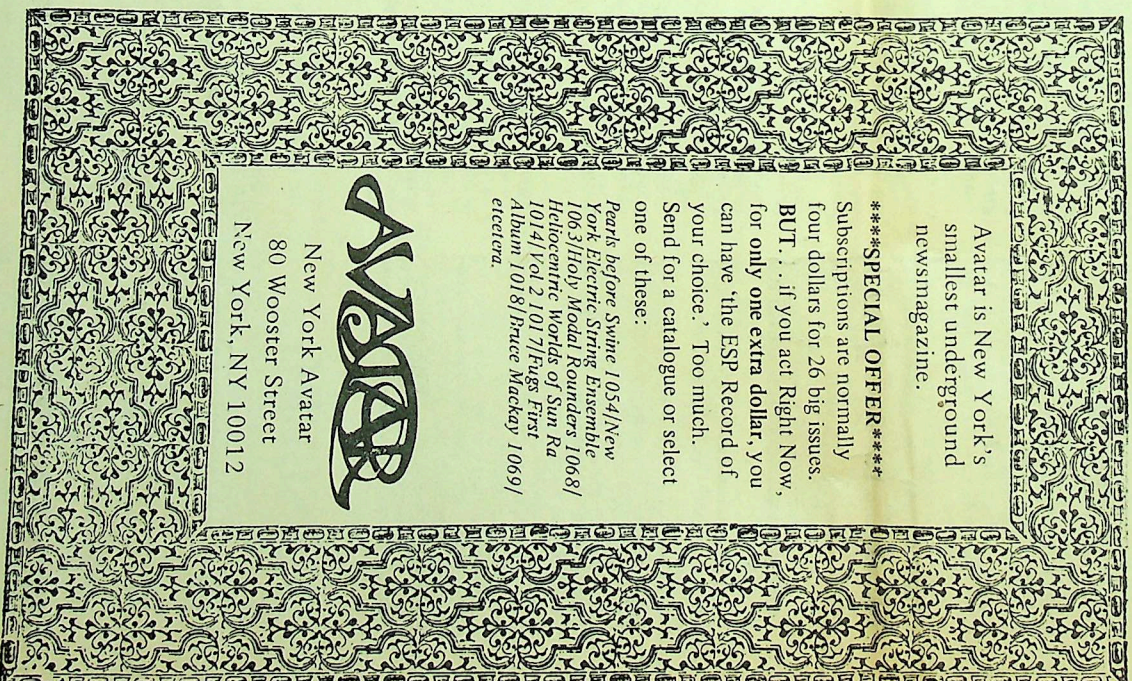 Avatar is New York's
smallest underground
newsmagazine.
****SPECIAL OFFER****
Subscriptions are normally
four dollars for 26 big issues.
BUT. . . if you act Right Now,
for only one extra dollar, you
can have 'the ESP Record of
your choice.' Too much.
Send for a catalogue or select
one of these:
Pearls before Swine 1054/New
York Electric String Ensemble
1063/Holy Modal Rounders 1068/
Heliocentric Worlds of Sun Ra
1014/Vol 2 1017/Fugs First
Album 1018/Bruce Mackay 1069/
etcetera.
AVATAR
New York Avatar
80 Wooster Street
New York, NY 10012